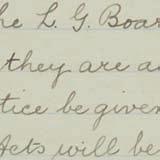 he L. G. Boar
they are a
tice be given
Acts will be